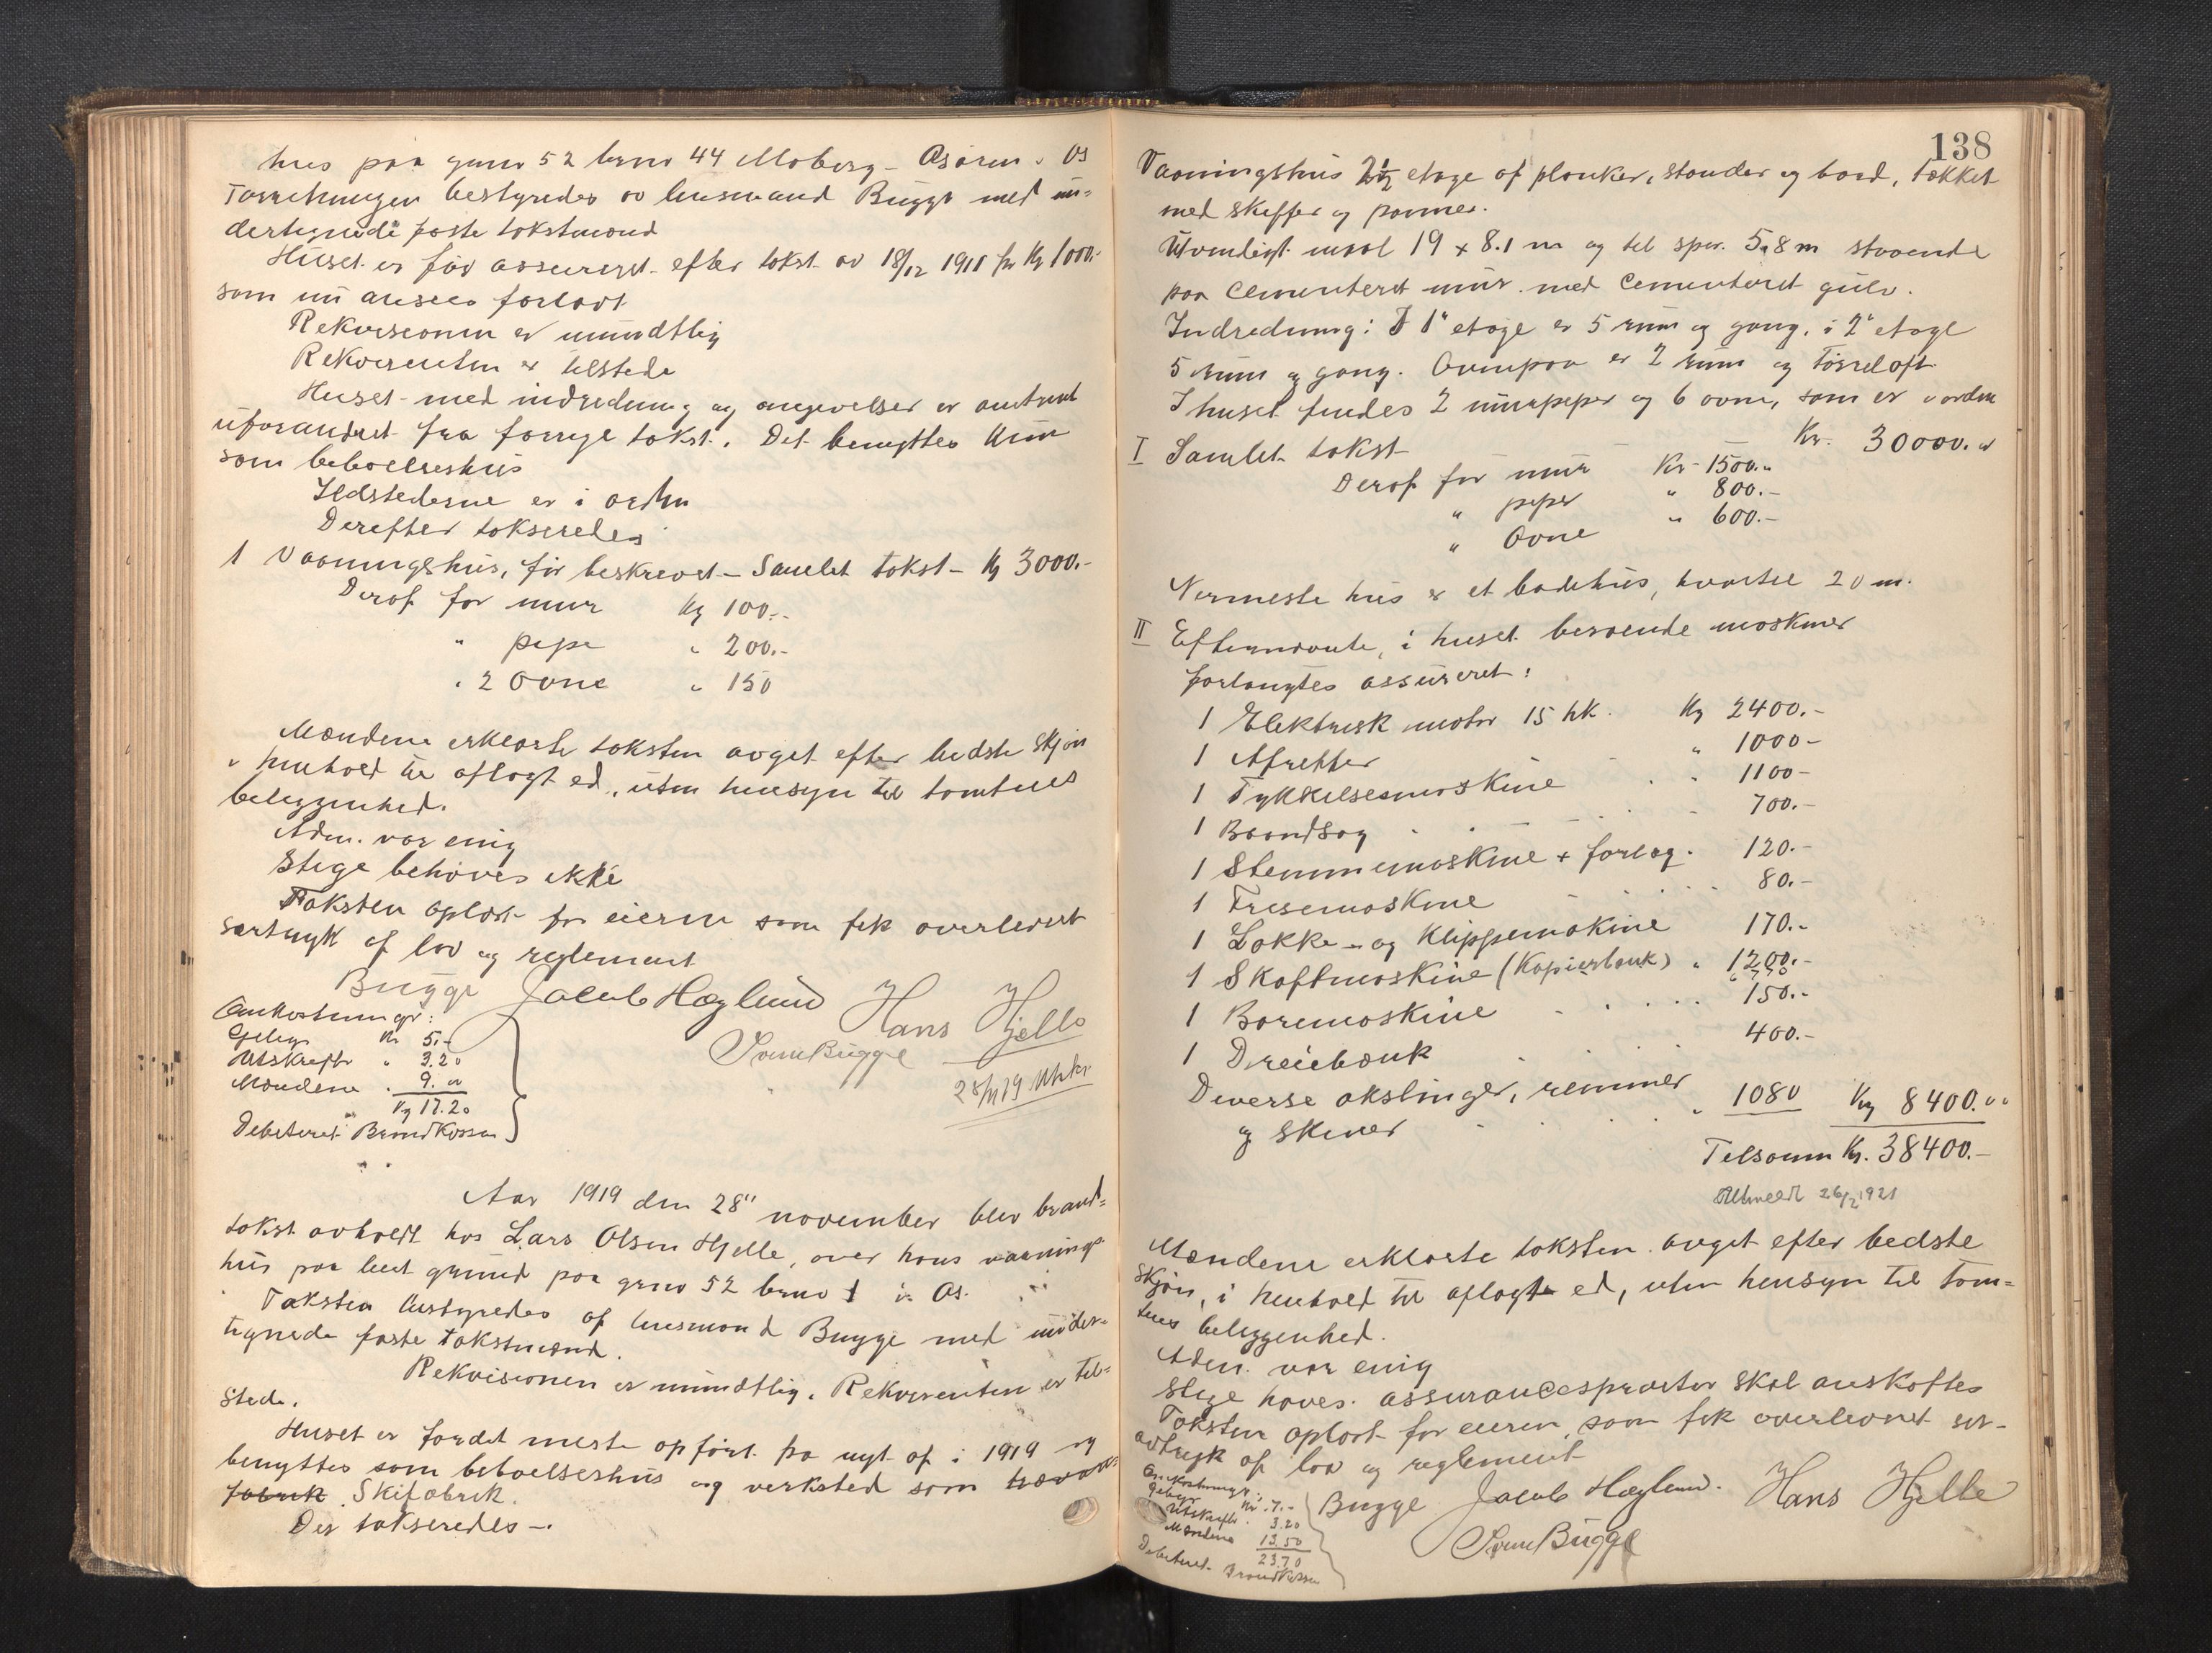 hus paa gnno 52 brno 44 Moberg - Osøren i Os
Forretningen bestyredes av lensmand Bugge med un=
dertegnede faste takstmænd
Huset er før assureret efter takst av 18/12 1911 for Kr 1000.-
som nu ansees forlavt
Rekvisionen er mundtlig
Rekvirenten er tilstede
Huset med indredning og angivelser er omtrent
uforandret fra forrige takst. Det benyttes kun
som beboelseshus
Ildstederne er i orden
Derefter takseredes
1 Vaaningshus, før beskrevet - Samlet takst - Kr 3000.-
Deraf for mur Kr 100.-
" pipe " 200.-
" 2 Ovne " 150
Mændene erklærte taksten avget efter bedste skjøn
i henhold til aflagt ed, uten hensyn til tomtens
beliggenhed.
Adm. var enig
Stige behøves ikke
Taksten oplæst for eieren som fik overlevert
særtryk af lov og reglement
Bugge Jacob Hæglund Hans Hjelle
Omkostninger:
Gebyr Kr 5.-
Utskrift " 3.20
Mændene " 9.00
Kr 17.20
Debiteret Brandkassen
28/11 19 Utskr.
Aar 1919 den 28" november blev brand=
takst avholdt hos Lars Olsen Hjelle, over hans vaanings=
hus paa leiet grund paa gnno 52 brno 1 i Os.
Taksten bestyredes af lensmand Bugge med under=
tegnede faste takstmænd.
Rekvisionen er mundtlig. Rekvirenten er til=
stede.
Huset er fordet meste opført fra nyt af i 1919 og
benyttes som beboelseshus og verksted som trævare=
fabrik Skifabrik.
Der takseredes -.
138
Vaaningshus 2½ etage af planker, stander og bord, tækket
med skiffer og panner.
Utvendigt maal 19 x 8.1 m og til sper. 5.8 m staaende
paa Cementeret mur med Cementeret gulv.
Indredning: I 1" etage er 5 rum og gang, i 2" etage
5 rum og gang. Ovenpaa er 2 rum og Tørreloft.
I huset findes 2 murpiper og 6 ovne, som er i orden
I Samlet takst Kr. 30000.00
Deraf for mur Kr 1500.-
" piper " 800.-
" Ovne " 600.-
Nermeste hus er et badehus, hvortil 20 m.
II Efternævnte, i huset beroende maskiner
forlangtes assureret:
1 Elektrisk motor 15 hk. Kr 2400.-
1 Afretter " 1000-
1 Tykkelsesmaskine " 1100-
1 Baandsag 700.-
1 Stemmemaskine + forlag. 120.-
1 Fresemaskine 80.-
1 Lokke- og Klippemakine 170.-
1 Skaftmaskine (Kopierbænk) " 1200.-
1 Boremaskine 150.-
1 Dreiebænk 400.-
Diverse akslinger, remmer
og skiver " 1080 Kr 8400.00
Tilsamm Kr. 38400.-
Utmeldt 26/2 1921
Mændene erklærte taksten avget efter bedste
skjøn, i henhold til aflagt ed, uten hensyn til tom=
tens beliggenhed.
Adm. var enig
Stige haves. assurancesprøiter skal anskaffes
Taksten oplæst for eieren, som fik overlevret sær-
avtryk af lov og reglement
Bugge Jacob Hæglund. Hans Hjelle
Omkostninger:
Gebyr Kr. 7.-
Utskrift 3.20
Mændene 13.50
23.70
Debiteret Brandkassen